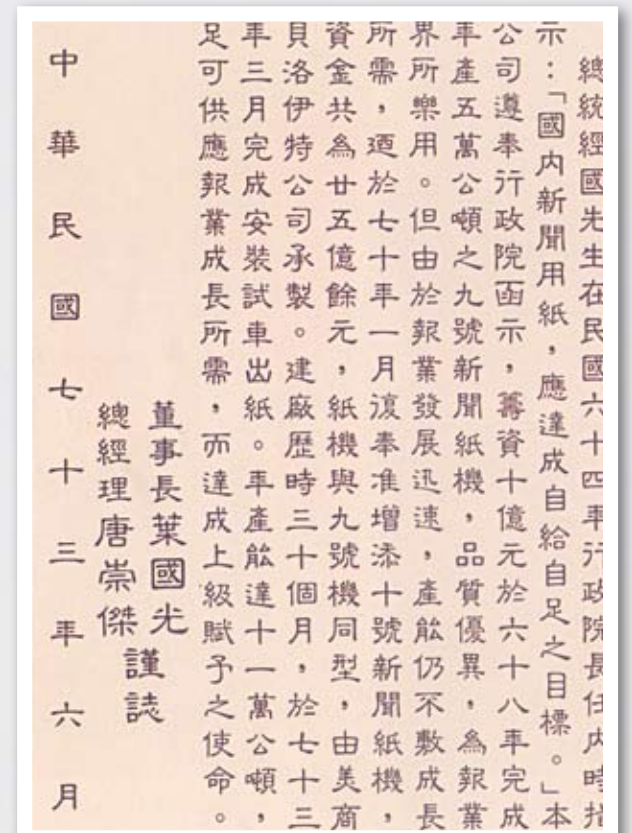 總統經國先生在民國六十四年行政院長任內時指
示：「國內新聞用紙，應達成自給自足之目標。」本
公司遵奉行政院函示，籌資十億元於六十八年完成
年產五萬公噸之九號新聞紙機，品質優異，為報業
界所樂用。但由於報業發展迅速，產能仍不敷成長
所需，迺於七十年一月復奉准增添十號新聞紙機，
資金共為廿五億餘元，紙機與九號機同型，由美商
貝洛伊特公司承製。建廠歷時三十個月，於七十三
年三月完成安裝試車出紙。年產能達十一萬公噸，
足可供應報業成長所需，而達成上級賦予之使命。
董事長葉國光
總經理唐崇傑
謹誌
中華民國七十三年六月